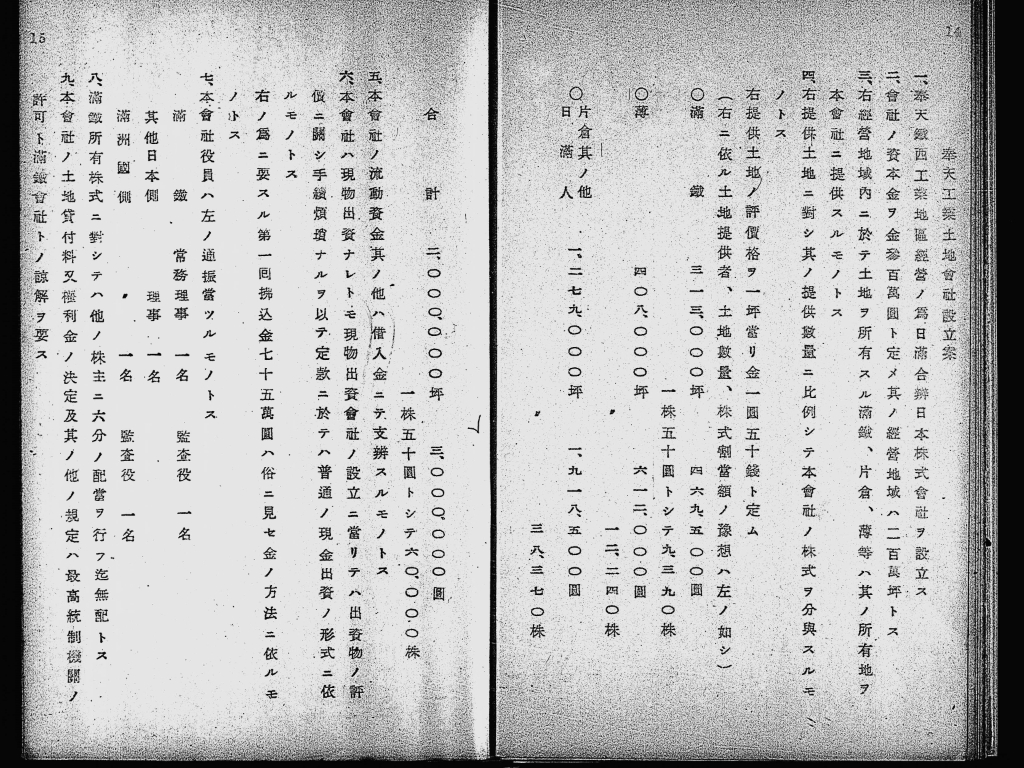 14
奉天工業土地會社設立案
一、奉天鐵西工業地區經營ノ爲日滿合辦日本株式會社ヲ設立ス
二、會社ノ資本金ヲ金參百萬圓ト定メ其ノ經營地域ハ二百萬坪トス
三、右經營地域內ニ於テ土地ヲ所有スル滿鐵、片倉、薄等ハ其ノ所有地ヲ
本會社ニ提供スルモノトス
四、右提供土地ニ對シ其ノ提供數量ニ比例シテ本會社ノ株式ヲ分與スルモ
ノトス
右提供土地ノ評價格ヲ一坪當リ金一圓五十錢ト定ム
(右ニ依ル土地提供者、土地數量、株式割當額ノ豫想ハ左ノ如シ)
〇滿 鐵 三一三、〇〇〇坪 四六九、五〇〇圓
一株五十圓トシテ九、三九〇株
〇薄 四〇八、〇〇〇坪 六一二、〇〇〇圓
〃 一二、二四〇株
〇片倉其ノ他
日 滿 人 一、二七九、〇〇〇坪 一、九一八、五〇〇圓
〃 三八、三七〇株
15
合 計 二、〇〇〇、〇〇〇坪 三、〇〇〇、〇〇〇圓
一株五十圓トシテ六〇、〇〇〇株
五、本會社ノ流動資金其ノ他ハ借入金ニテ支辨スルモノトス
六、本會社ハ現物出資ナレトモ現物出資會社ノ設立ニ當リテハ出資物ノ評
價ニ關シ手續煩瑣ナルヲ以テ定款ニ於テハ普通ノ現金出資ノ形式ニ依
ルモノトス
右ノ爲ニ要スル第一回拂込金七十五萬圓ハ俗ニ見セ金ノ方法ニ依ルモ
ノトス
七、本會社役員ハ左ノ通振當ツルモノトス
滿 鐵 常務理事 一名 監査役 一名
其他日本側 理事 一名
滿洲國側 〃 一名 監査役 一名
八、滿鐵所有株式ニ對シテハ他ノ株主ニ六分ノ配當ヲ行フ迄無配トス
九、本會社ノ土地貸付料又權利金ノ決定及其ノ他ノ規定ハ最高統制機關ノ
許可ト滿鐵會社トノ諒解ヲ要ス